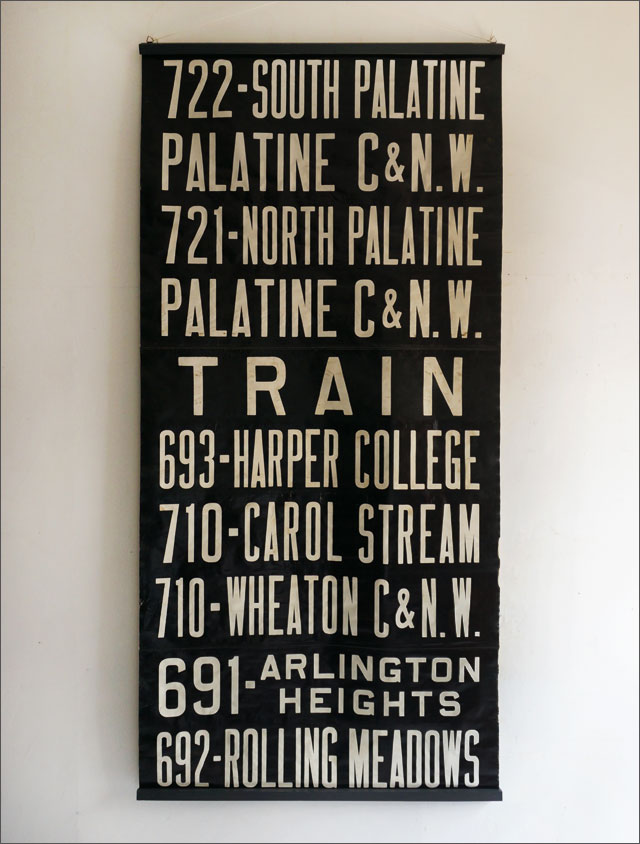 722-SOUTH PALATINE
PALATINE C&N.W.
721-NORTH PALATINE
PALATINE C&N.W.
TRAIN
693-HARPER COLLEGE
710-CAROL STREAM
710-WHEATON C&N.W.
691-ARLINGTON
HEIGHTS
692-ROLLING MEADOWS